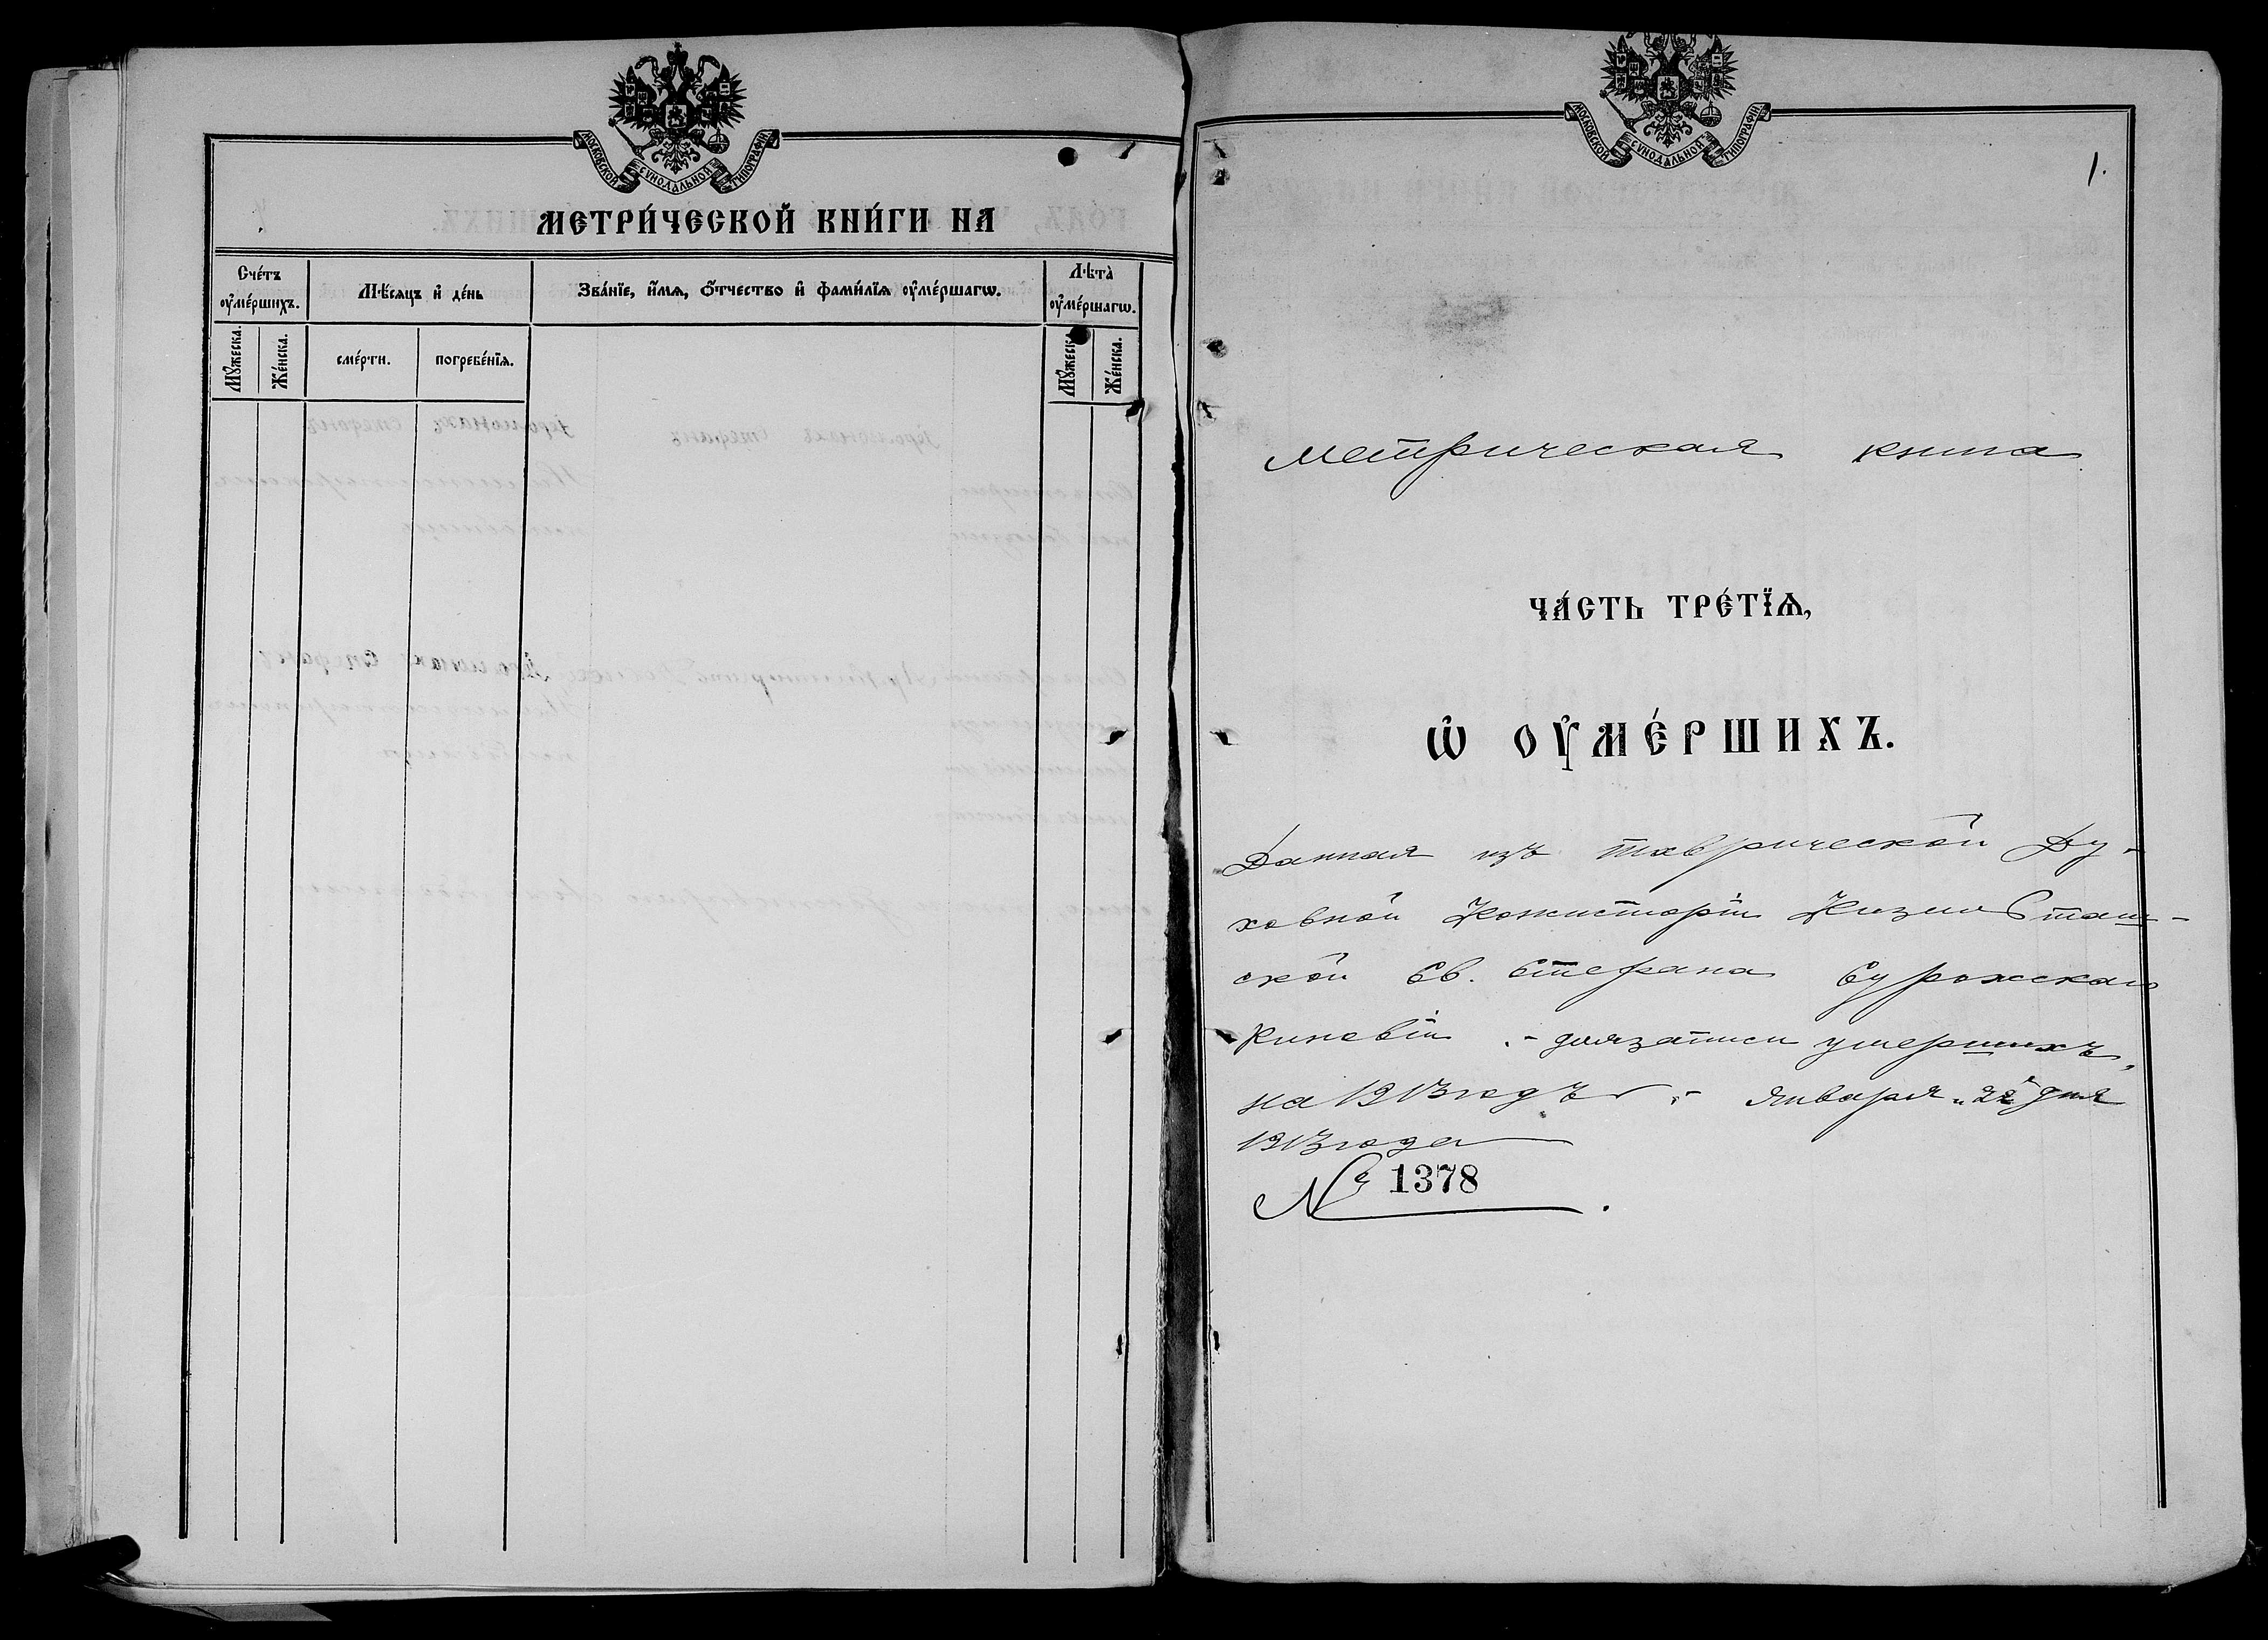 МОСКОВСКОЙ СѴНОДАЛЬНОЙ ТИПОГРАФІИ
МЕТРИ́ЧЕСКОЙ КНИ́ГИ НА
Счéтъ ᲂу҆мéршихъ.
Мѣ́сяцъ и҆ дéнь
Звáнїе, и҆́мѧ, ѻ҆́тчество и҆ фами́лїѧ ᲂу҆мéршагѡ.
Лѣ́та ᲂу҆мéршагѡ.
Мꙋ́жеска.
Жéнска.
смéрти.
погребéнїѧ.
Мꙋ́жеска.
Жéнска.
МОСКОВСКОЙ СѴНОДАЛЬНОЙ ТИПОГРАФІИ
1.
Метрическая книга
ЧÁСТЬ ТРÉТЇѦ,
Ѡ҆ ОУ҆МÉРШИХЪ.
Данная изъ Таврической Ду-
ховной Консисторіи Кизилъ Таш-
ской Св. Стефана Сурожскаго
Киновіи .- для записи умершихъ,
на 1913 годъ .- Января „22" дня
1913 года
№ 1378.